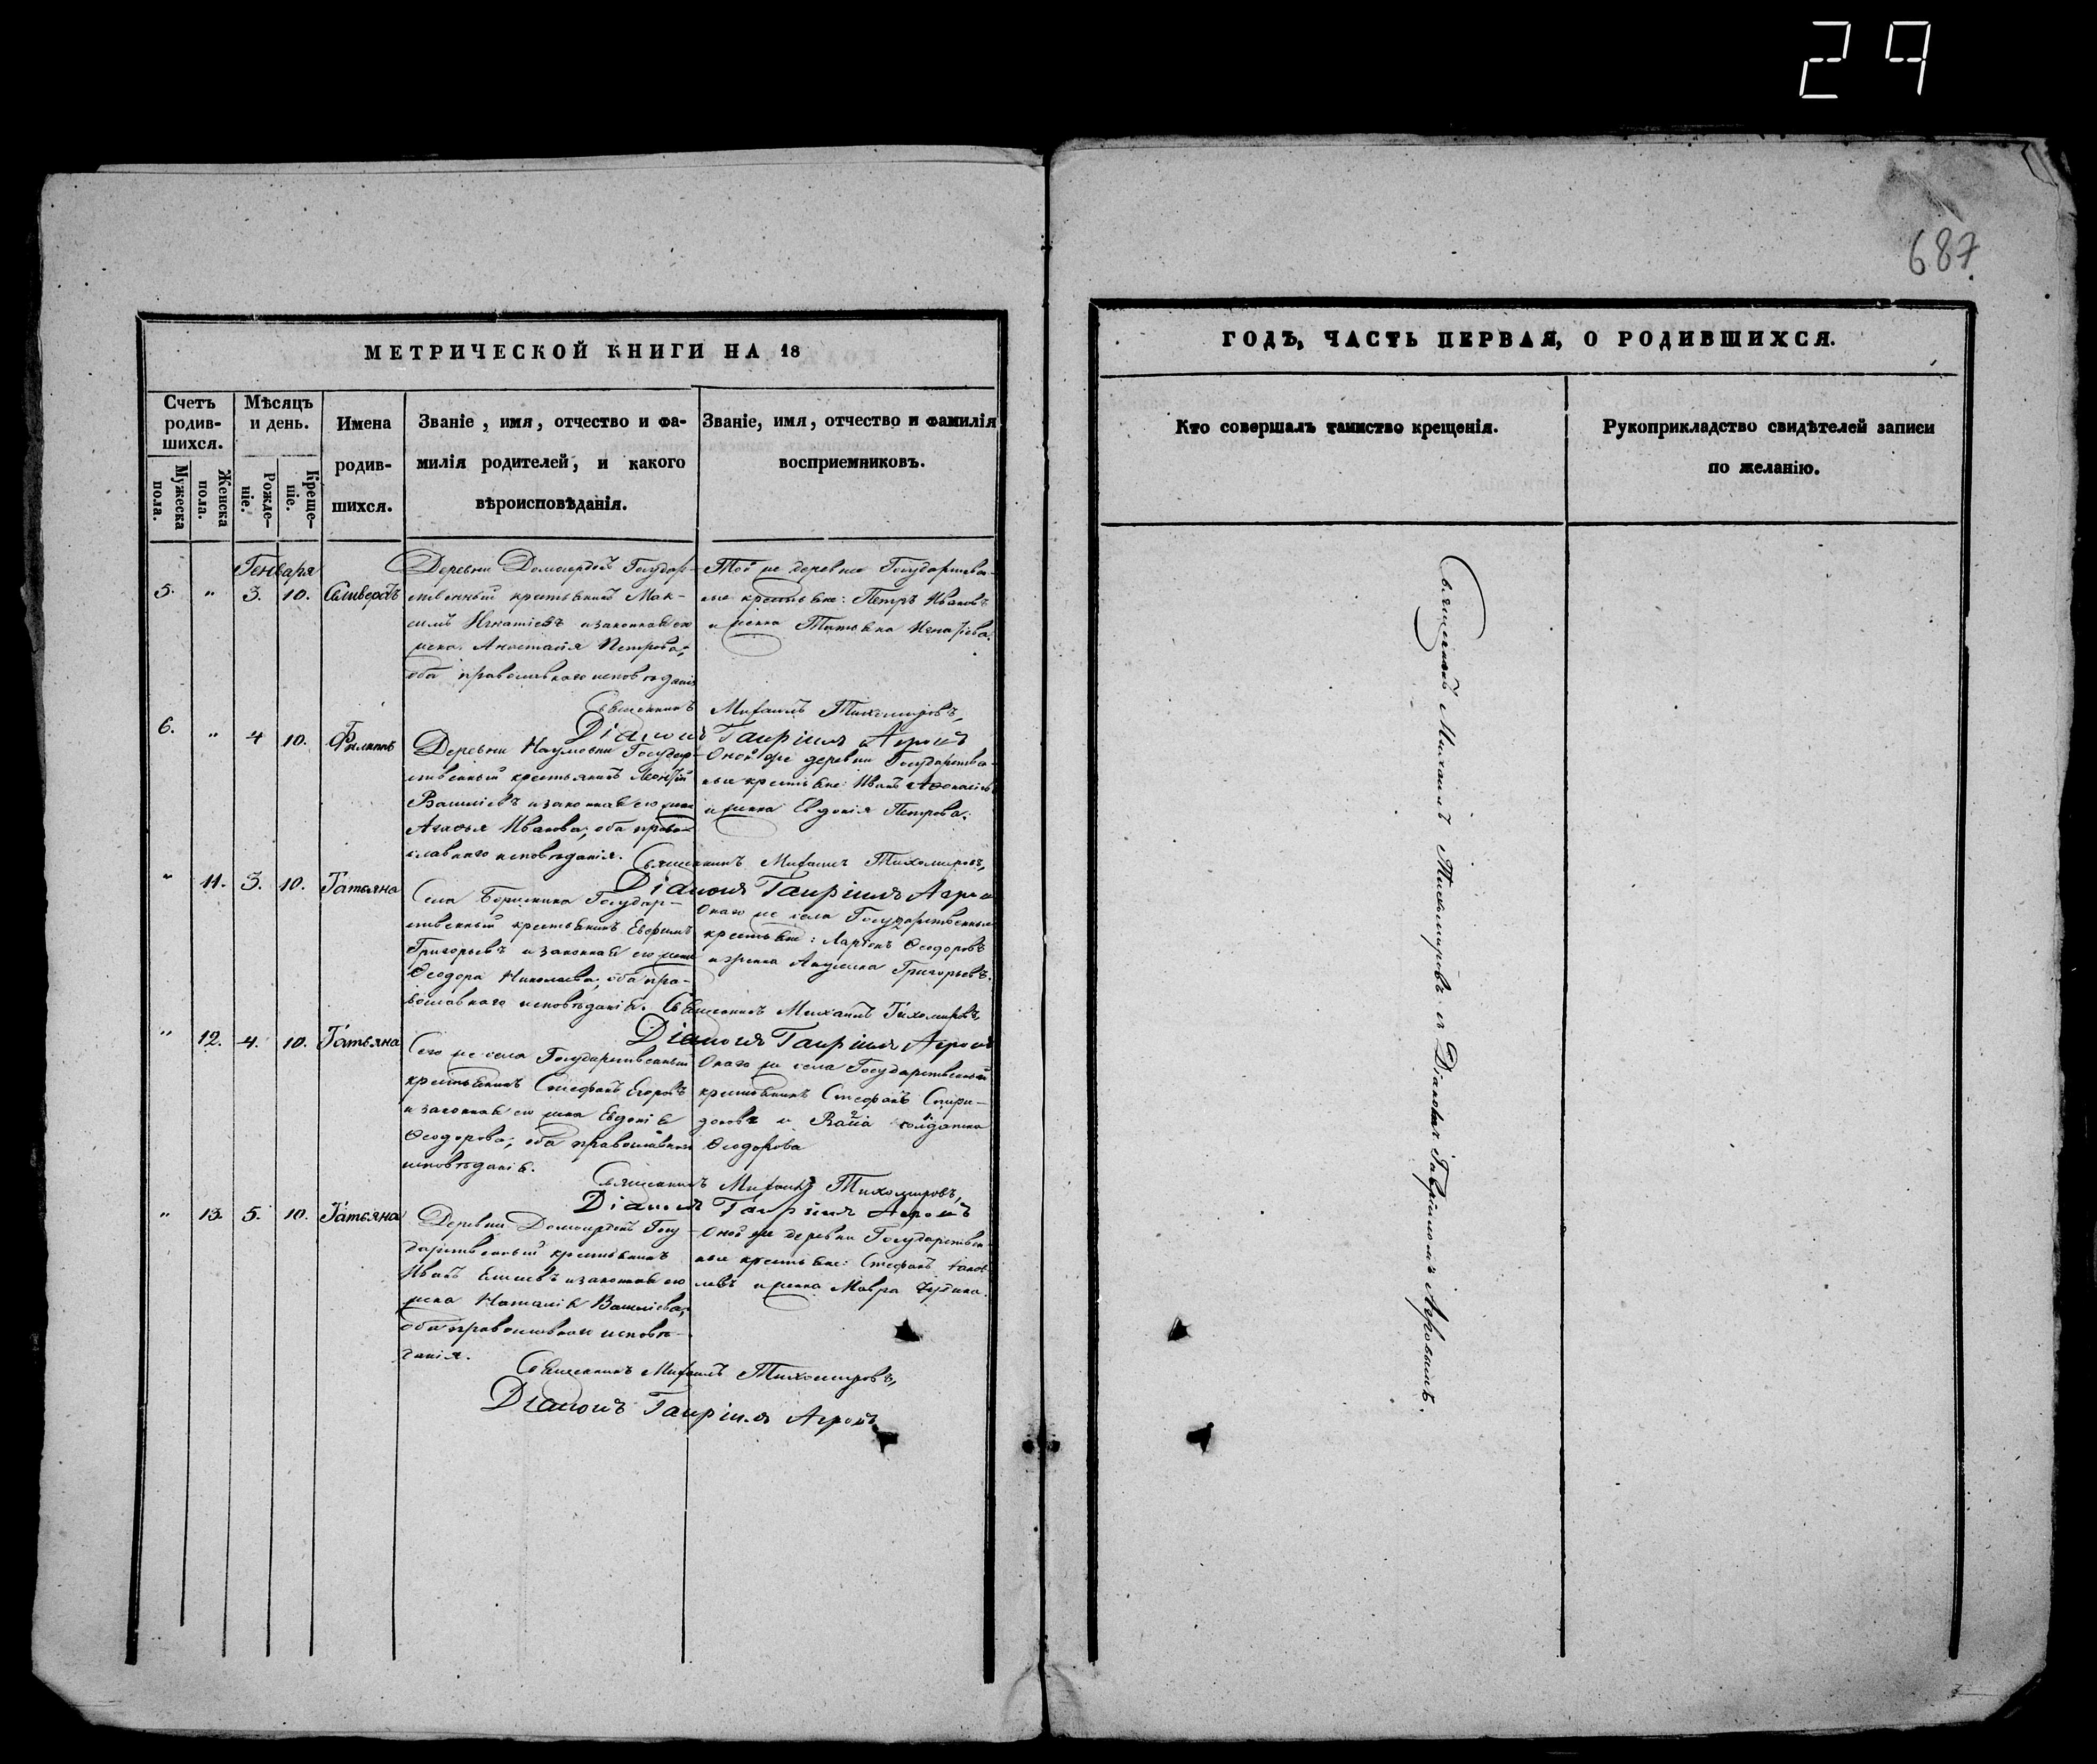 29
687
МЕТРИЧЕСКОЙ КНИГИ НА 18
Счетъ родив-шихся.
Мужеска пола.
Женска пола.
Мѣсяцъ и день.
Рожде-ніе.
Креще-ніе.
Имена родив-шихся.
Званіе, имя, отчество и фа-
милія родителей, и какого
вѣроисповѣданія.
Званіе, имя, отчество и фамилія
восприемниковъ.
Генваря
5. " 3. 10.
Деревни Государ-
ственный крестьянинъ Мак-
симъ Игнатіевъ и законная его
жена Анастасія Петрова;
оба православнаго исповѣданія
Той же деревни Государствен-
ные крестьяне: Петръ Ивановъ
и женка Татьяна Игнатіева.
Священникъ Михаилъ Тихомировъ,
Діаконъ Гавріилъ
6. " 4 10. Филиппъ
Деревни Наумовки Государ-
ственный крестьянинъ
Василіевъ и законная его жена
Агафья Иванова; оба право-
славнаго исповѣданія.
Оной же деревни Государствен-
ные крестьяне: Иванъ
и женка Евдокія Петрова.
Священникъ Михаилъ Тихомировъ,
Діаконъ Гавріилъ
" 11. 3. 10. Татьяна
Села Государ-
ственный крестьянинъ Евфимъ
Григорьевъ и законная его жена
Ѳеодора Николаева; оба пра-
вославнаго исповѣданія.
Онаго же села Государственные
крестьяне: Ѳеодоровъ
и женка Акулина
Священникъ Михаилъ Тихомировъ,
Діаконъ Гавріилъ
" 12. 4. 10. Татьяна
Сего же села Государственный
крестьянинъ Стефанъ Егоровъ
и законная его жена Евдокія
Ѳеодорова; оба православнаго
исповѣданія.
Онаго же села Государственный
крестьянинъ Стефанъ Спири-
доновъ и солдатка
Ѳеодорова
Священникъ Михаилъ Тихомировъ,
Діаконъ Гавріилъ
" 13. 5. 10. Татьяна
Деревни Госу-
дарственный крестьянинъ
Иванъ и законная его
жена Наталія Василіева;
оба православнаго исповѣ-
данія.
Оной же деревни Государствен-
ные крестьяне: Стефанъ Яков-
левъ и женка Мавра
Священникъ Михаилъ Тихомировъ,
Діаконъ Гавріилъ
ГОДЪ, ЧАСТЬ ПЕРВАЯ, О РОДИВШИХСЯ.
Кто совершалъ таинство крещенія.
Рукоприкладство свидѣтелей записи
по желанію.
Священникъ Михаилъ Тихомировъ съ Діакономъ Гавріиломъ